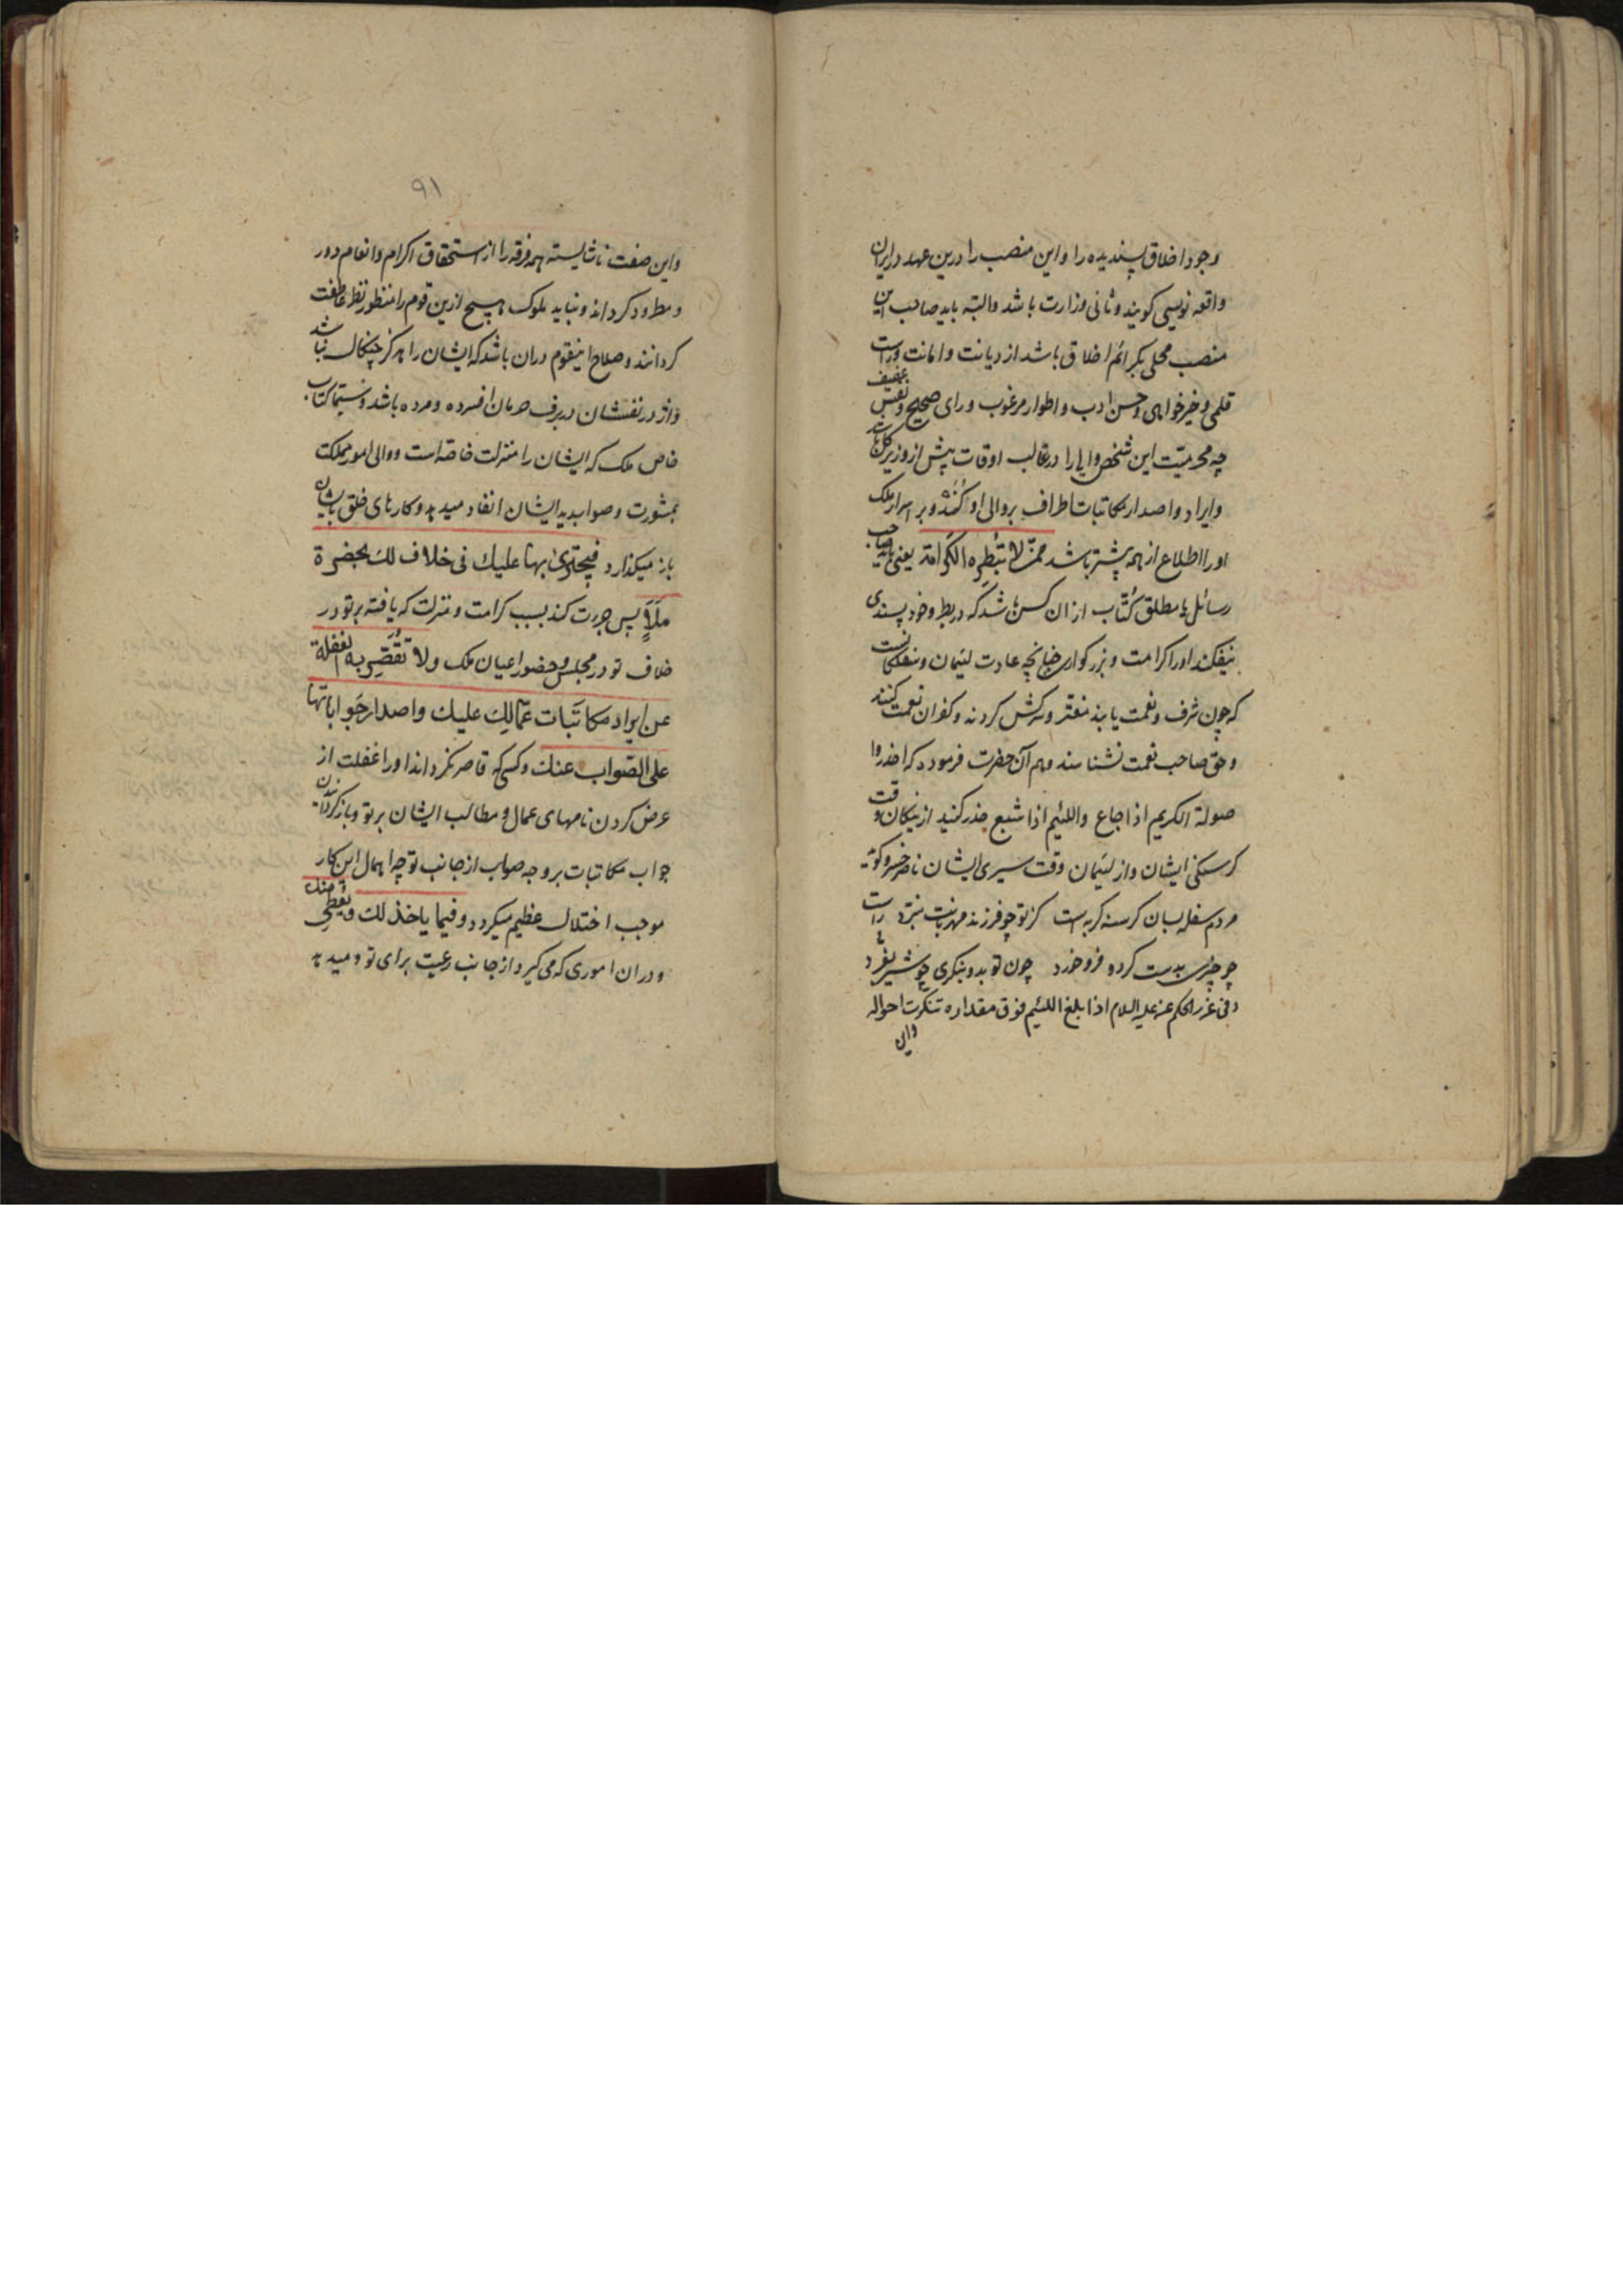 وجود اخلاق پسندیده را و این منصب را درین عهد در ایران
واقعه نویسی کویند و ثانی وزارت باشد و البته باید صاحب این
منصب محلی بکرائم اخلاق باشد از دیانت و امانت و راست
قلمی و خیرخواهی و حسن ادب و اطوار مرغوب و رای صحیح و نفس عفیف
چه محرمیّت این شخص والی را در غالب اوقات پیش از وزیر
وایراد و اصدار مکاتبات اطراف بر والی او کند و بر اسرار ملک
او را اطلاع از همه بیشتر باشد ممّن لا تبطره الکرامة یعنی باید صاحب
رسائل یا مطلق کُتّاب از ان کس باشد که در بطر و خودپسندی
نیفکند او را کرامت و بزرکواری چنانچه عادت لئیمان و سفلکانست
که چون شرف و نعمت یابند مغتر و سرکش کردند و کفران نعمت کنند
و حق صاحب نعمت نشناسند و هم آن حضرت فرموده که احذروا
صولة الکریم اذا جاع واللئیم اذا شبع حذر کنید از نیکان وقت
کرسنکی ایشان و از لئیمان وقت سیری ایشان ناصر خسرو کوید
مردم سفله بسان کرسنه کربه است کز تو چو فرزند مهربانت نبرد
چو چیزی بدست کرد و فرو خورد چون تو بدو بنکری چو شیر بغرد
و فی غرر الحکم عنه علیه السلام اذا بلغ اللئیم فوق مقداره تنکرت احواله
واین
۹۱
و این صفت ناشایسته همه فرقه را از استحقاق اکرام و انعام دور
و مطرود کرداند و نباید ملوک هیچ ازین قوم را منظور نظر عاطفت
کردانند و صلاح اینقوم دران باشد که ایشان را هرکز چنکال نباشد
و اژدر نفسشان در برف حرمان افسرده و مرده باشد و سیّما کتاب
خاص ملک که ایشان را منزلت خاصه است و والی امور مملکت
بمشورت و صوابدید ایشان انفاد میدهد و کارهای خلق بایشان
باز میکذارد فیجتری بها علیك فی خلاف لك بحضرة
ملأٍ پس جرءت کند بسبب کرامت و منزلت که یافته بر تو در
خلاف تو در مجلس و حضور اعیان ملک ولا تُقَصِّر به الغفلة
عن ایراد مکاتبات عمّالك علیك واصدار جوابها
علی الصّواب عنك و کسی که قاصر نکرداند او را غفلت از
عرض کردن نامهای عمال و مطالب ایشان بر تو و باز کردانیدن
جواب مکاتبات بر وجه صواب از جانب تو چه اهمال این کار
موجب اختلال عظیم میکردد وفیما یاخذ لك ویعطی منك
و دران اموری که می کیرد از جانب رعیت برای تو و میدهد